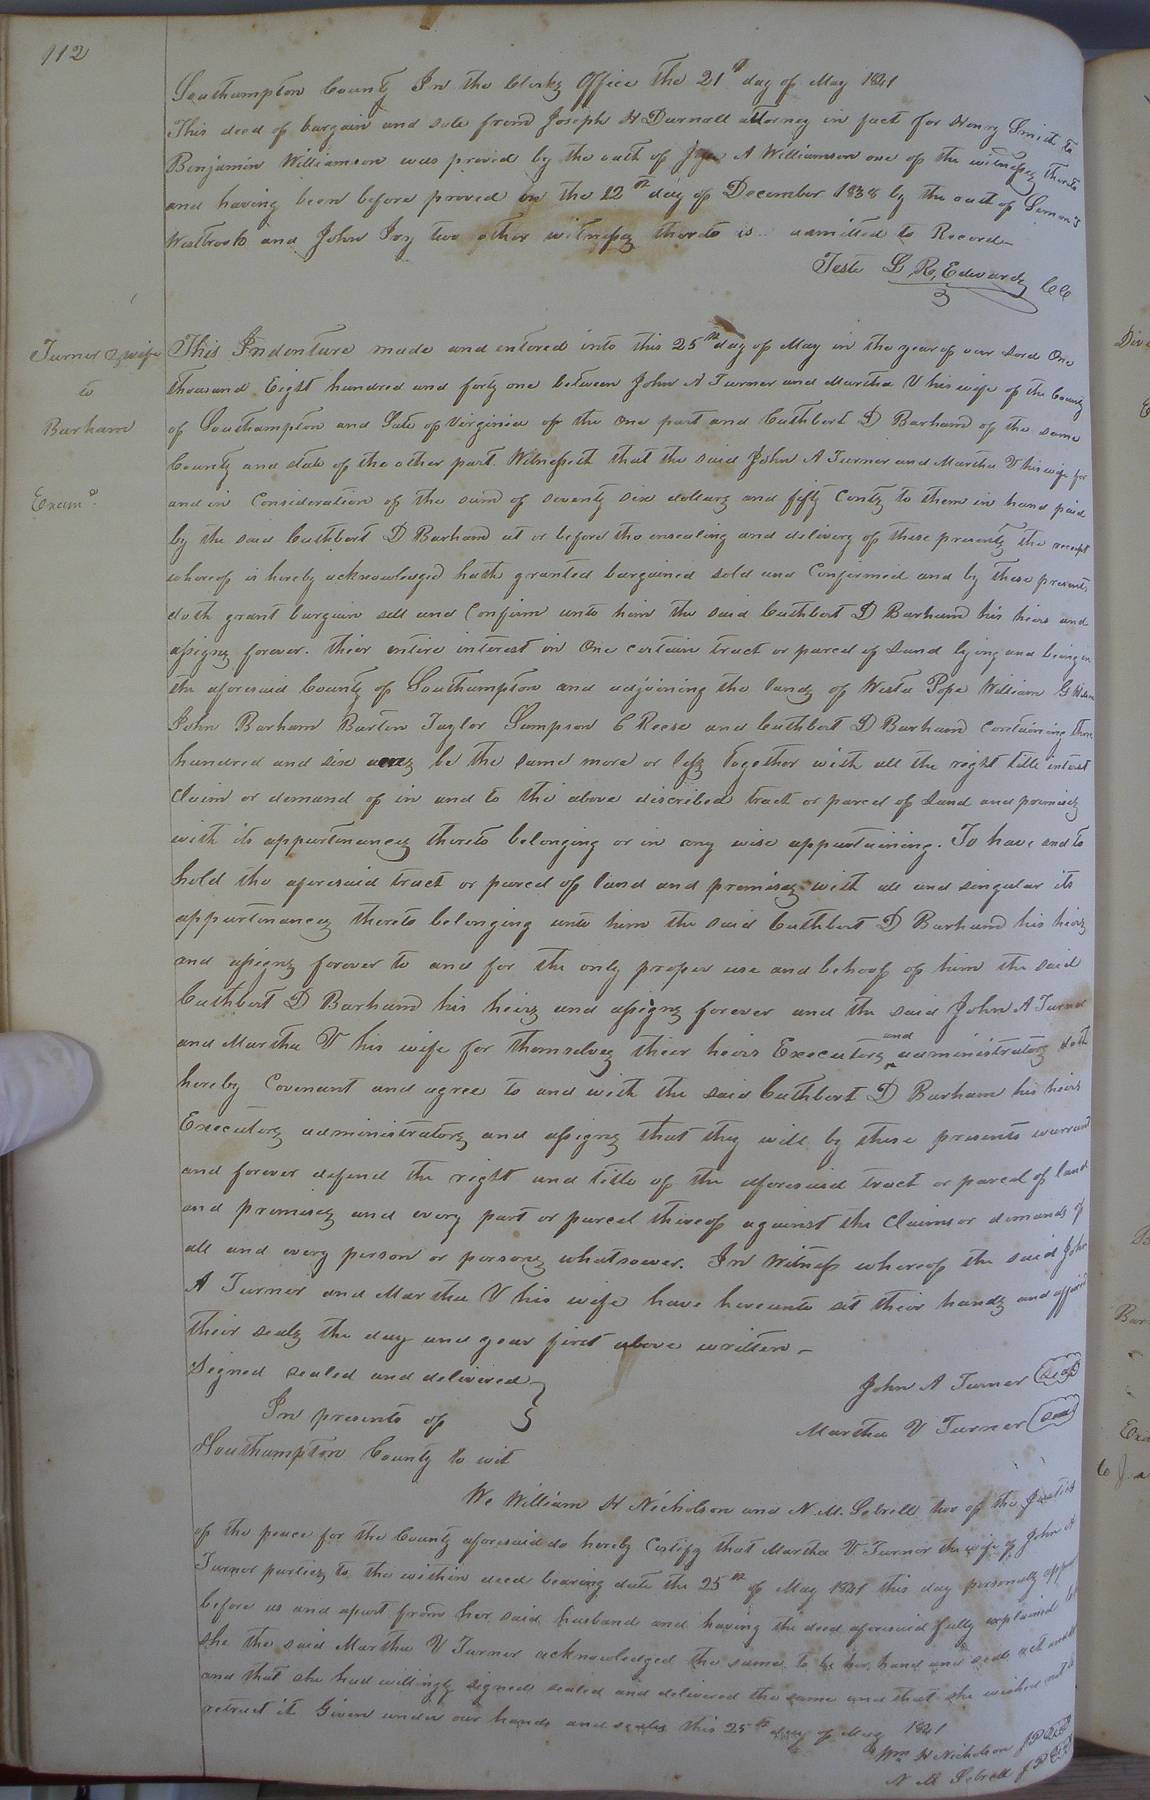 112
Southampton County In the Clerks Office the 21st day of May 1841
This deed of bargain and sale from Joseph H Darnall attorney in fact for Henry Smith to
Benjamin Williamson was proved by the oath of A Williamson one of the witnesses thereto
and having been before proved on the 12th day of December 1838 by the oath of
Westbrook and John Ivy two other witnesses thereto is admitted to Record
Teste L R, Edwards CC
Turner & wife
to
Barham
Exam.d
This Indenture made and entered into this 25th day of May in the year of our Lord One
thousand Eight hundred and forty one between John A Turner and Martha V his wife of the County
of Southampton and State of Virginia of the one part and Cuthbert D Barham of the same
County and state of the other part. Witnesseth that the said John A Turner and Martha V his wife for
and in Consideration of the sum of seventy six dollars and fifty Cents to them in hand paid
by the said Cuthbert D Barham at or before the ensealing and delivery of these presents the receipt
whereof is hereby acknowledged hath granted bargained sold and Confirmed and by these presents
doth grant bargain sell and Confirm unto him the said Cuthbert D Barham his heirs and
assigns forever. their entire interest in One certain tract or parcel of Land lying and being in
the aforesaid County of Southampton and adjoining the lands of Pope William G
John Barham Barton Taylor Sampson C Reese and Cuthbert D Barham Containing three
hundred and six acres be the same more or less Together with all the right title interest
Claim or demand of in and to the above described tract or parcel of Land and premises
with its appurtenances thereto belonging or in any wise appurtaining. To have and to
hold the aforesaid tract or parcel of land and premises with all and singular its
appurtenances thereto belonging unto him the said Cuthbert D Barham his heirs
and assigns forever to and for the only proper use and behoof of him the said
Cuthbert D Barham his heirs and assigns forever and the said John A Turner
and Martha V his wife for themselves their heirs Executors and administrators doth
hereby Covenant and agree to and with the said Cuthbert D Barham his heirs
Executors administrators and assigns that they will by these presents warrant
and forever defend the right and title of the aforesaid tract or parcel of land
and premises and every part or parcel thereof against the Claims or demands of
all and every person or persons whatsoever. In Witness whereof the said John
A Turner and Martha V his wife have hereunto set their hands and affixed
their seals the day and year first above written -
Signed sealed and delivered
In presents of
John A Turner Seal
Martha V Turner Seal
Southampton County to wit
We William H Nicholson and N. M. Sebrell two of the Justices
of the peace for the County aforesaid do hereby Certify that Martha V Turner the wife of John A
Turner parties to the within deed bearing date the 25th of May 1841 this day personally appeared
before us and apart from her said husband and having the deed aforesaid fully explained to
she the said Martha V Turner acknowledged the same to be her hand and seal act and
and that she had willingly signed sealed and delivered the same and that she wished not to
retract it Given under our hands and seals this 25th day of May 1841
Wm H Nicholson J P Seal
N M Sebrell J P Seal